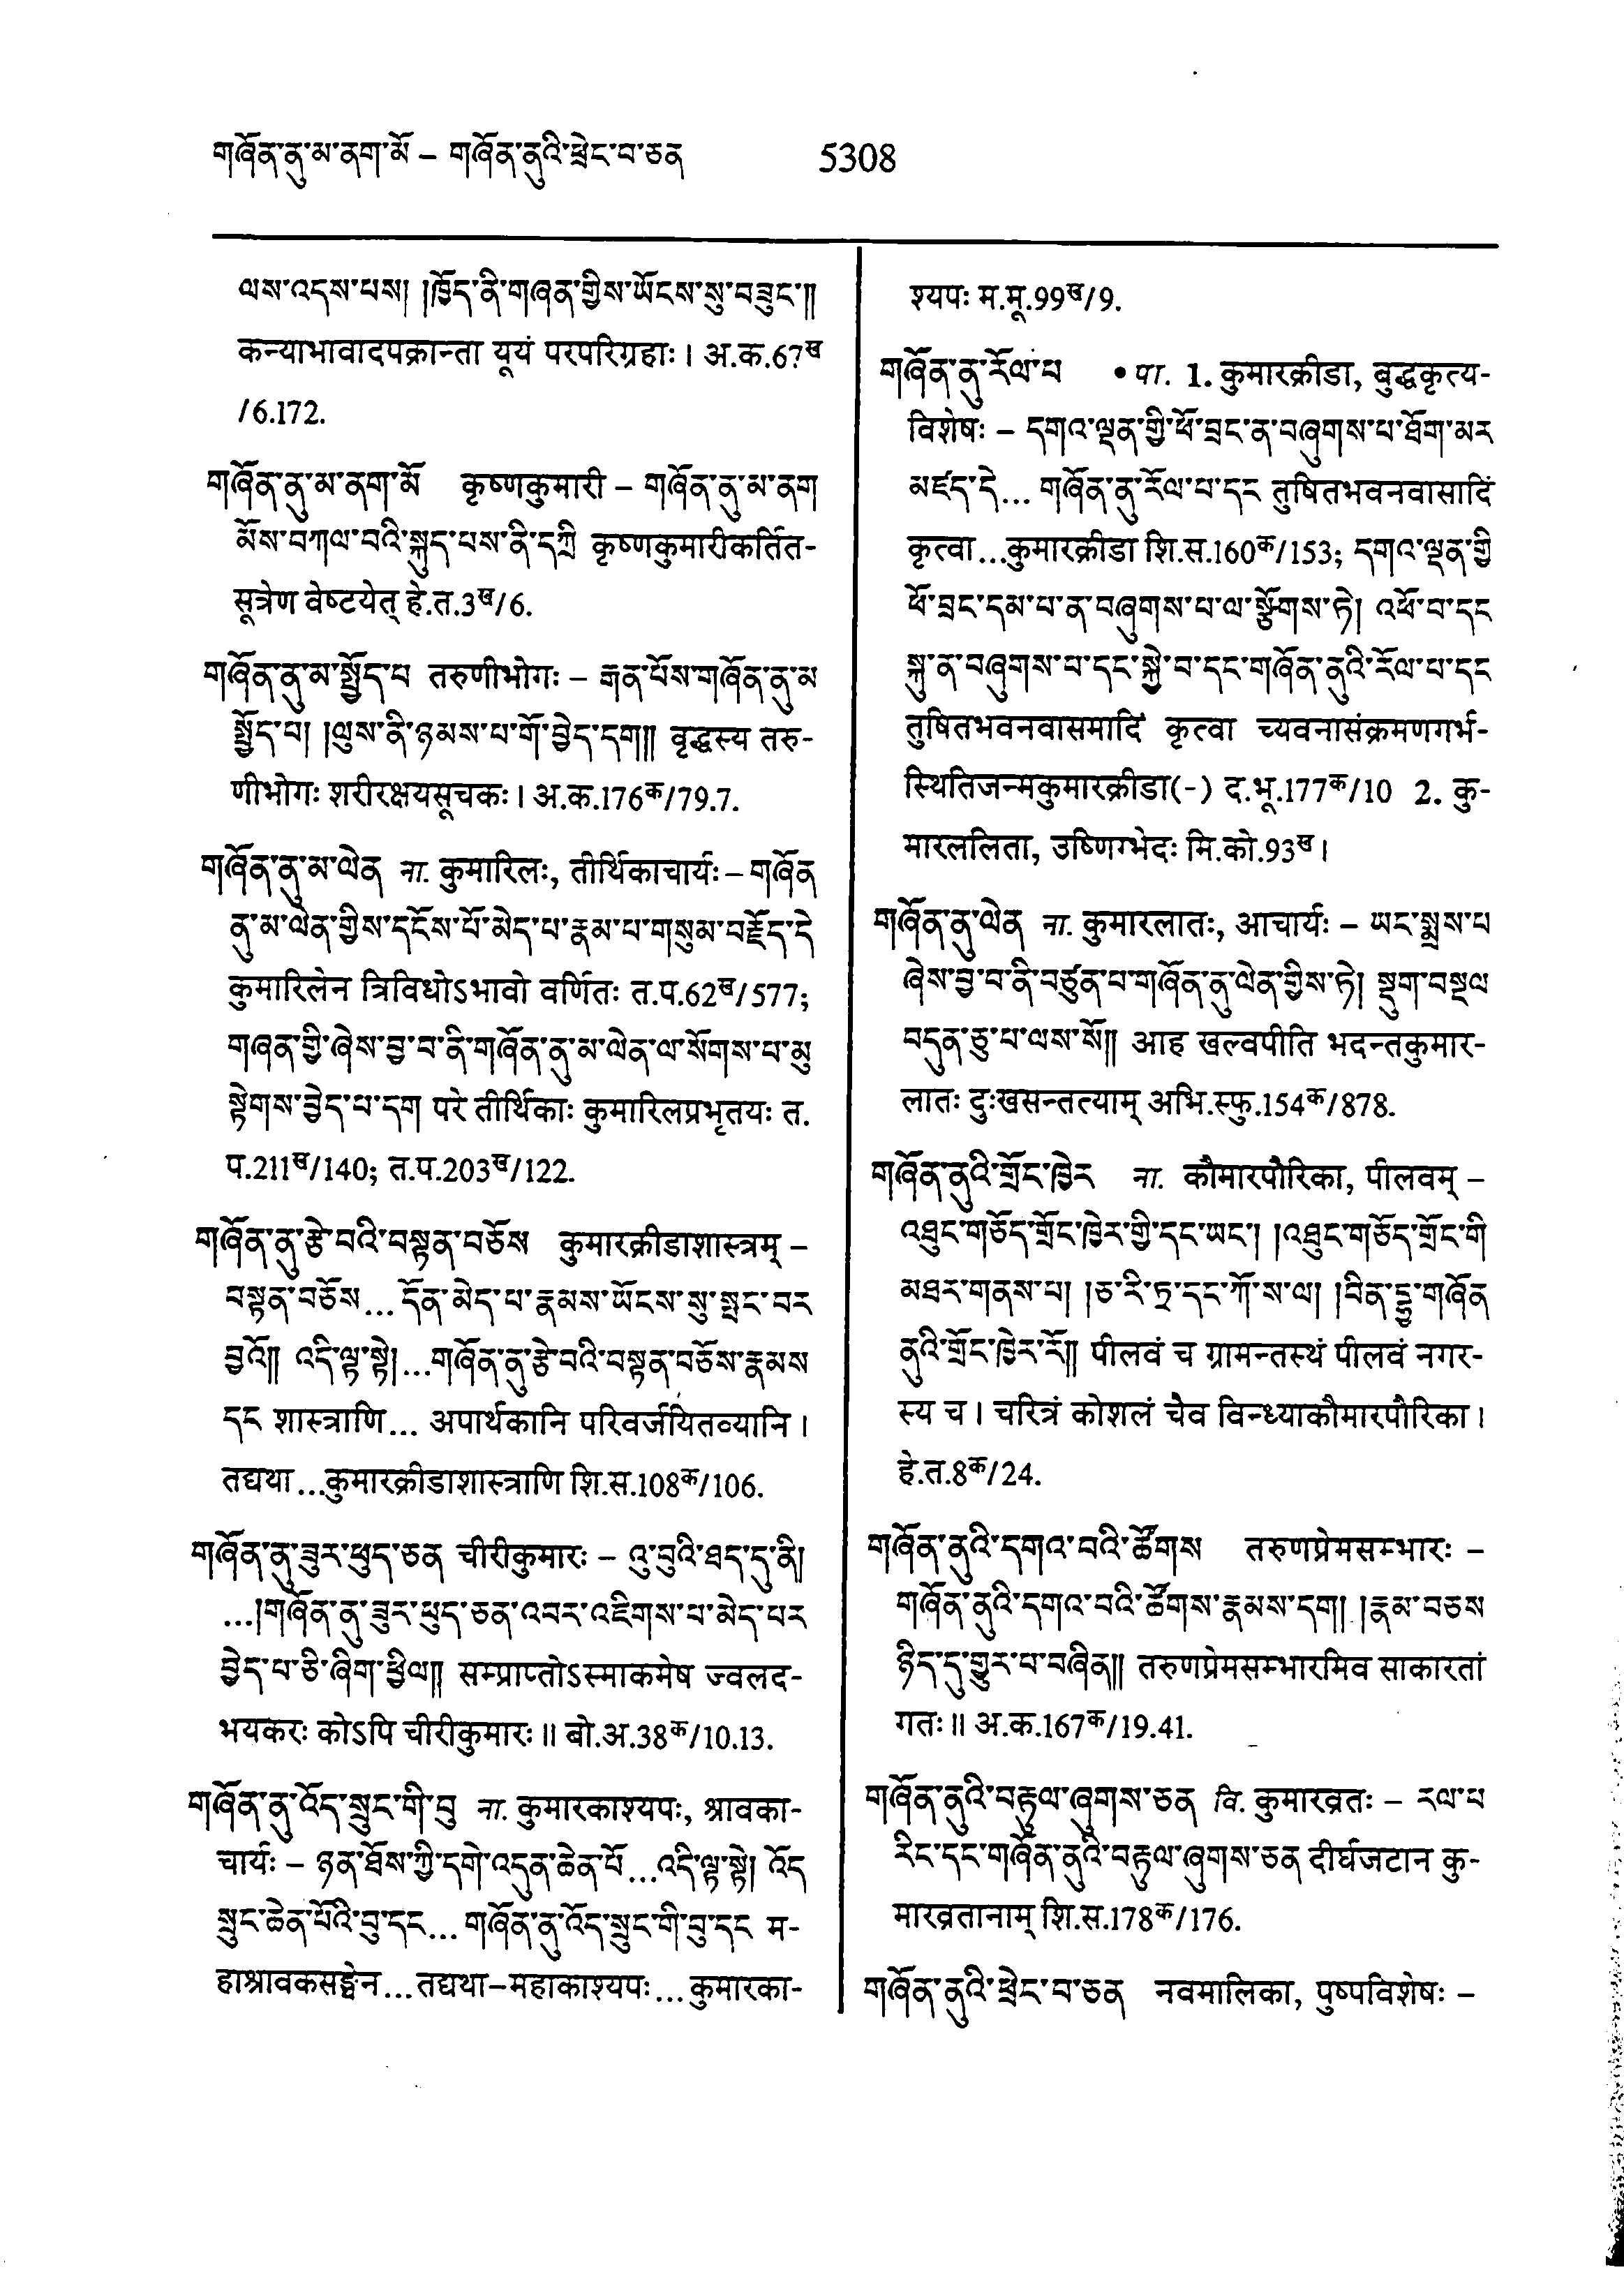 གཞོན་ནུ་མ་ནག་མོ – གཞོན་ནུའི་ཕྲེང་བ་ཅན
5308
ལས་འདས་པས། །ཁྱོད་ནི་གཞན་གྱིས་ཡོངས་སུ་བཟུང་༎
कन्याभावादपक्रान्ता यूयं परपरिग्रहाः। अ.क.67ख
/6.172.
གཞོན་ནུ་མ་ནག་མོ कृष्णकुमारी – གཞོན་ནུ་མ་ནག
མོས་བཀལ་བའི་སྐུད་པས་ནི་དཀྲི कृष्णकुमारीकर्तित-
सूत्रेण वेष्टयेत् हे.त.3ख/6.
གཞོན་ནུ་མ་སྤྱོད་པ तरुणीभोगः – རྒན་པོས་གཞོན་ནུ་མ
སྤྱོད་པ། །ལུས་ནི་ཉམས་པ་གོ་བྱེད་དག༎ वृद्धस्य तरु-
णीभोगः शरीरक्षयसूचकः। अ.क.176क/79.7.
གཞོན་ནུ་མ་ལེན ना. कुमारिलः, तीर्थिकाचार्यः – གཞོན
ནུ་མ་ལེན་གྱིས་དངོས་པོ་མེད་པ་རྣམ་པ་གསུམ་བརྗོད་དེ
कुमारिलेन त्रिविधोऽभावो वर्णितः त.प.62ख/577;
གཞན་གྱི་ཞེས་བྱ་བ་ནི་གཞོན་ནུ་མ་ལེན་ལ་སོགས་པ་མུ
སྟེགས་བྱེད་པ་དག परे तीर्थिकाः कुमारिलप्रभृतयः त.
प.211ख/140; त.प.203ख/122.
གཞོན་ནུ་རྩེ་བའི་བསྟན་བཅོས कुमारक्रीडाशास्त्रम् –
བསྟན་བཅོས... དོན་མེད་པ་རྣམས་ཡོངས་སུ་སྤང་བར
བྱའོ༎ འདི་ལྟ་སྟེ།...གཞོན་ནུ་རྩེ་བའི་བསྟན་བཅོས་རྣམས
དང शास्त्राणि... अपार्थकानि परिवर्जयितव्यानि।
तद्यथा...कुमारक्रीडाशास्त्राणि शि.स.108क/106.
གཞོན་ནུ་ཟུར་ཕུད་ཅན चीरीकुमारः – འུ་བུའི་ཐད་དུ་ནི།
...།གཞོན་ནུ་ཟུར་ཕུད་ཅན་འབར་འཇིགས་པ་མེད་པར
བྱེད་པ་ཅི་ཞིག་ཕྱིལ༎ सम्प्राप्तोऽस्माकमेष ज्वलद-
भयकरः कोऽपि चीरीकुमारः॥ बो.अ.38क/10.13.
གཞོན་ནུ་འོད་སྲུང་གི་བུ ना. कुमारकाश्यपः, श्रावका-
चार्यः – ཉན་ཐོས་ཀྱི་དགེ་འདུན་ཆེན་པོ...འདི་ལྟ་སྟེ། འོད
སྲུང་ཆེན་པོའི་བུ་དང... གཞོན་ནུ་འོད་སྲུང་གི་བུ་དང म-
हाश्रावकसङ्घेन...तद्यथा–महाकाश्यपः... कुमारका-
श्यपः म.मू.99ख/9.
གཞོན་ནུ་རོལ་པ • पा. 1. कुमारक्रीडा, बुद्धकृत्य-
विशेषः – དགའ་ལྡན་གྱི་ཕོ་བྲང་ན་བཞུགས་པ་ཐོག་མར
མཛད་དེ... གཞོན་ནུ་རོལ་པ་དང तुषितभवनवासादिं
कृत्वा...कुमारक्रीडा शि.स.160क/153; དགའ་ལྡན་གྱི
ཕོ་བྲང་དམ་པ་ན་བཞུགས་པ་ལ་སྩོགས་ཏེ། འཕོ་བ་དང
སྐུ་ན་བཞུགས་པ་དང་སྐྱེ་བ་དང་གཞོན་ནུའི་རོལ་པ་དང
तुषितभवनवासमादिं कृत्वा च्यवनासंक्रमणगर्भ-
स्थितिजन्मकुमारक्रीडा(-) द.भू.177क/10 2. कु-
मारललिता, उष्णिग्भेदः मि.को.93ख।
གཞོན་ནུ་ལེན ना. कुमारलातः, आचार्यः – ཡང་སྨྲས་པ
ཞེས་བྱ་བ་ནི་བཙུན་པ་གཞོན་ནུ་ལེན་གྱིས་ཏེ། སྡུག་བསྔལ
བདུན་ཅུ་པ་ལས་སོ༎ आह खल्वपीति भदन्तकुमार-
लातः दुःखसन्तत्याम् अभि.स्फु.154क/878.
གཞོན་ནུའི་གྲོང་ཁྱེར ना. कौमारपौरिका, पीलवम् –
འཐུང་གཅོད་གྲོང་ཁྱེར་གྱི་དང་ཡང་། །འཐུང་གཅོད་གྲོང་གི
མཐར་གནས་པ། །ཅ་རི་ཏྲ་དང་ཀོ་ས་ལ། །བིན་དྷྱ་གཞོན
ནུའི་གྲོང་ཁྱེར་རོ༎ पीलवं च ग्रामन्तस्थं पीलवं नगर-
स्य च। चरित्रं कोशलं चैव विन्ध्याकौमारपौरिका।
हे.त.8क/24.
གཞོན་ནུའི་དགའ་བའི་ཚོགས तरुणप्रेमसम्भारः –
གཞོན་ནུའི་དགའ་བའི་ཚོགས་རྣམས་དག། །རྣམ་བཅས
ཉིད་དུ་གྱུར་པ་བཞིན༎ तरुणप्रेमसम्भारमिव साकारतां
गतः॥ अ.क.167क/19.41.
གཞོན་ནུའི་བརྟུལ་ཞུགས་ཅན वि. कुमारव्रतः – རལ་པ
རིང་དང་གཞོན་ནུའི་བརྟུལ་ཞུགས་ཅན दीर्घजटान कु-
मारव्रतानाम् शि.स.178क/176.
གཞོན་ནུའི་ཕྲེང་བ་ཅན नवमालिका, पुष्पविशेषः –